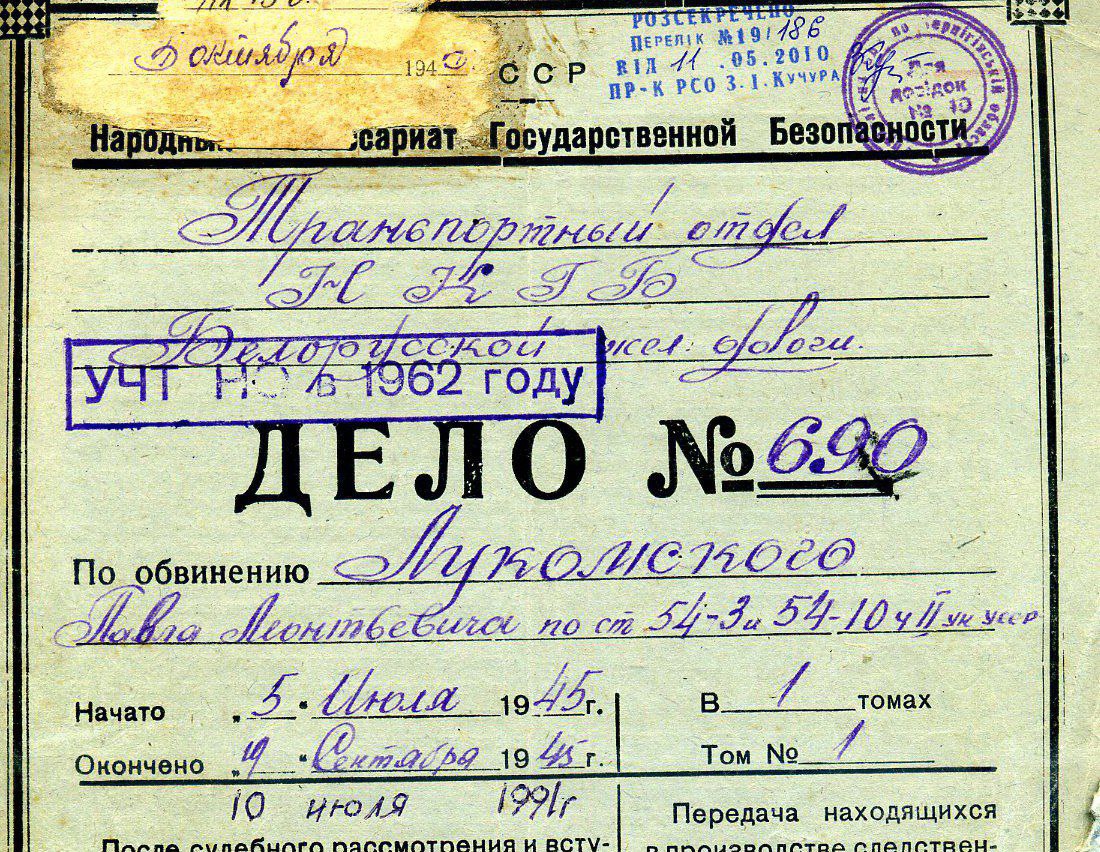 октября 194
ССР
РОЗСЕКРЕЧЕНО
ПЕРЕЛІК №19/186
ВІД 11.05.2010
ПР-К РСО З.І.КУЧУРА
Для
довідок
№ 10
Народный Комиссариат Государственной Безопасности
Транспортный отдел
НКГБ
Белорусской жел. дороги.
УЧТ НО в 1962 году
ДЕЛО № 690
По обвинению Лукомского
Павла Леонтьевича по ст 54-3 и 54-10 ч II ук усср
Начато „5“ Июля 1945 г.
В 1 томах
Окончено „9“ Сентября 1945 г.
Том № 1
10 июля 1991г
Передача находящихся
После судебного рассмотрения и всту-
в производстве следствен-